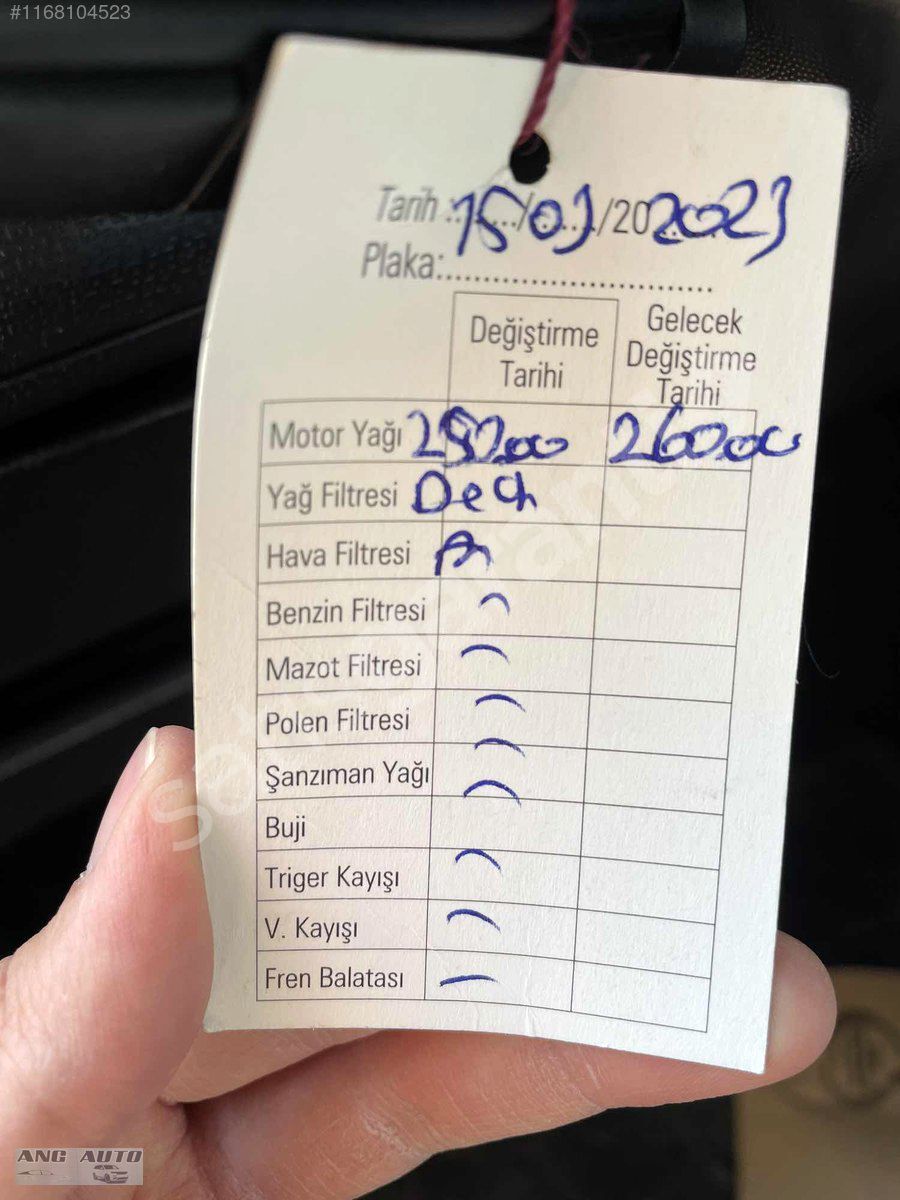 #1168104523
Tarih : 15/03/20 2023
Plaka:
Değiştirme Tarihi
Gelecek Değiştirme Tarihi
Motor Yağı 260.00
Yağ Filtresi
Hava Filtresi
Benzin Filtresi
Mazot Filtresi
Polen Filtresi
Şanzıman Yağı
Buji
Triger Kayışı
V. Kayışı
Fren Balatası
ANG AUTO